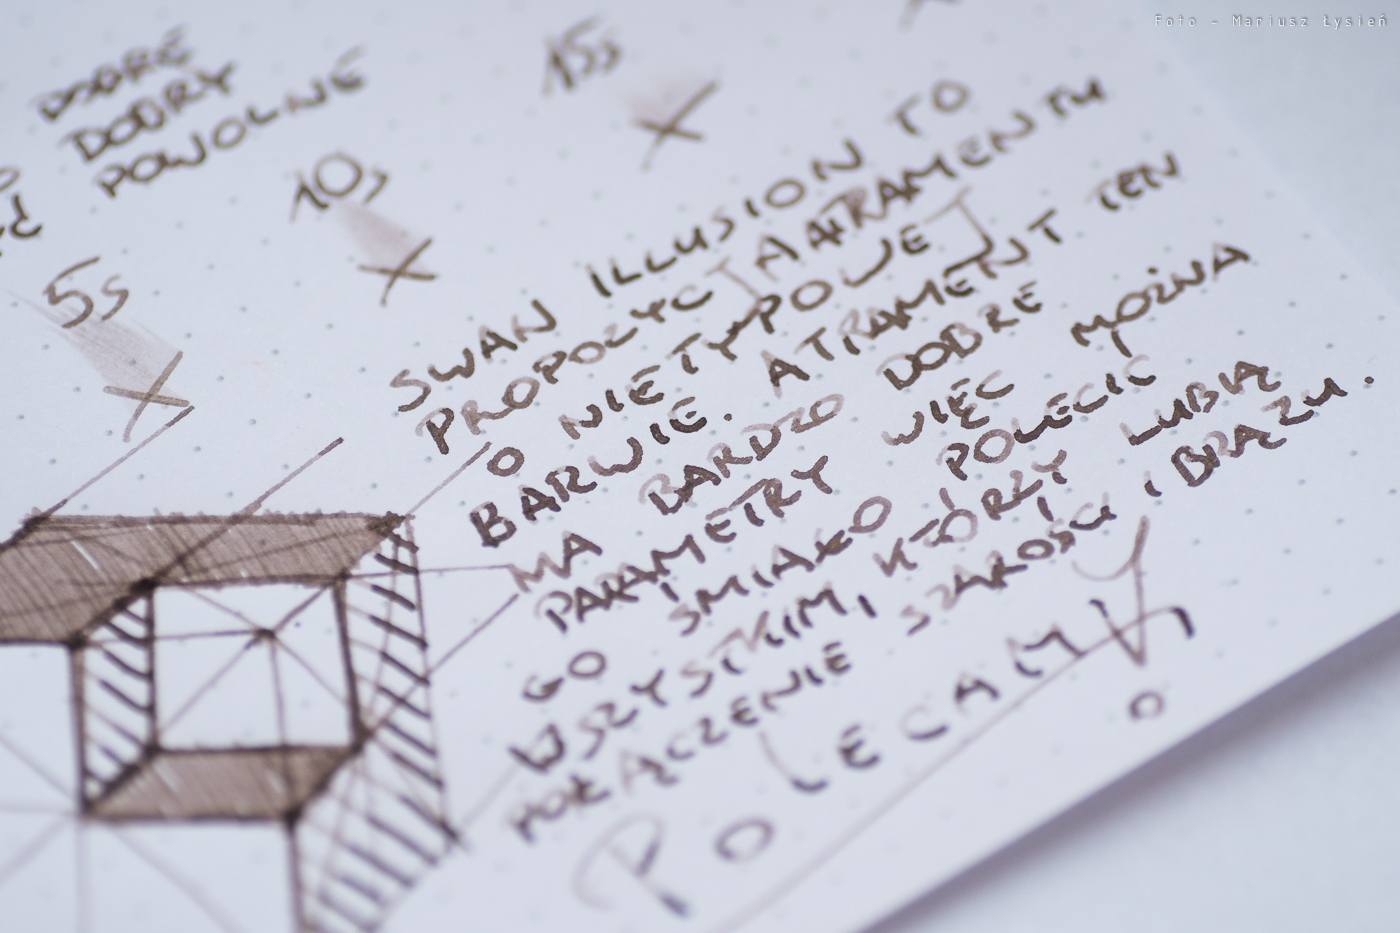 Foto - Mariusz Łysień
DOBRE
DOBRY
POWOLNE
15s
10s
5s
SWAN ILLUSION TO
PROPOZYCJA ATRAMENTU
O NIETYPOWEJ
BARWIE. ATRAMENT TEN
MA BARDZO DOBRE
PARAMETRY WIĘC MOŻNA
GO ŚMIAŁO POLECIĆ
WSZYSTKIM, KTÓRZY LUBIĄ
POŁĄCZENIE SZAROŚCI I BRĄZU.
POLECAMY